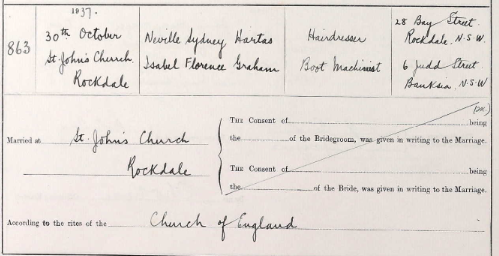 1937.
863
30th October
St. John's Church
Rockdale
Neville Sydney Hartas
Isabel Florence Graham
Hairdresser
Boot Machinist
28 Bay Street.
Rockdale. N.S.W.
6 Judd Street
Banksia. N.S.W
Married at St. John's Church
Rockdale
THE CONSENT of being
the of the Bridegroom, was given in writing to the Marriage.
THE CONSENT of being
the of the Bride, was given in writing to the Marriage.
According to the rites of the Church of England